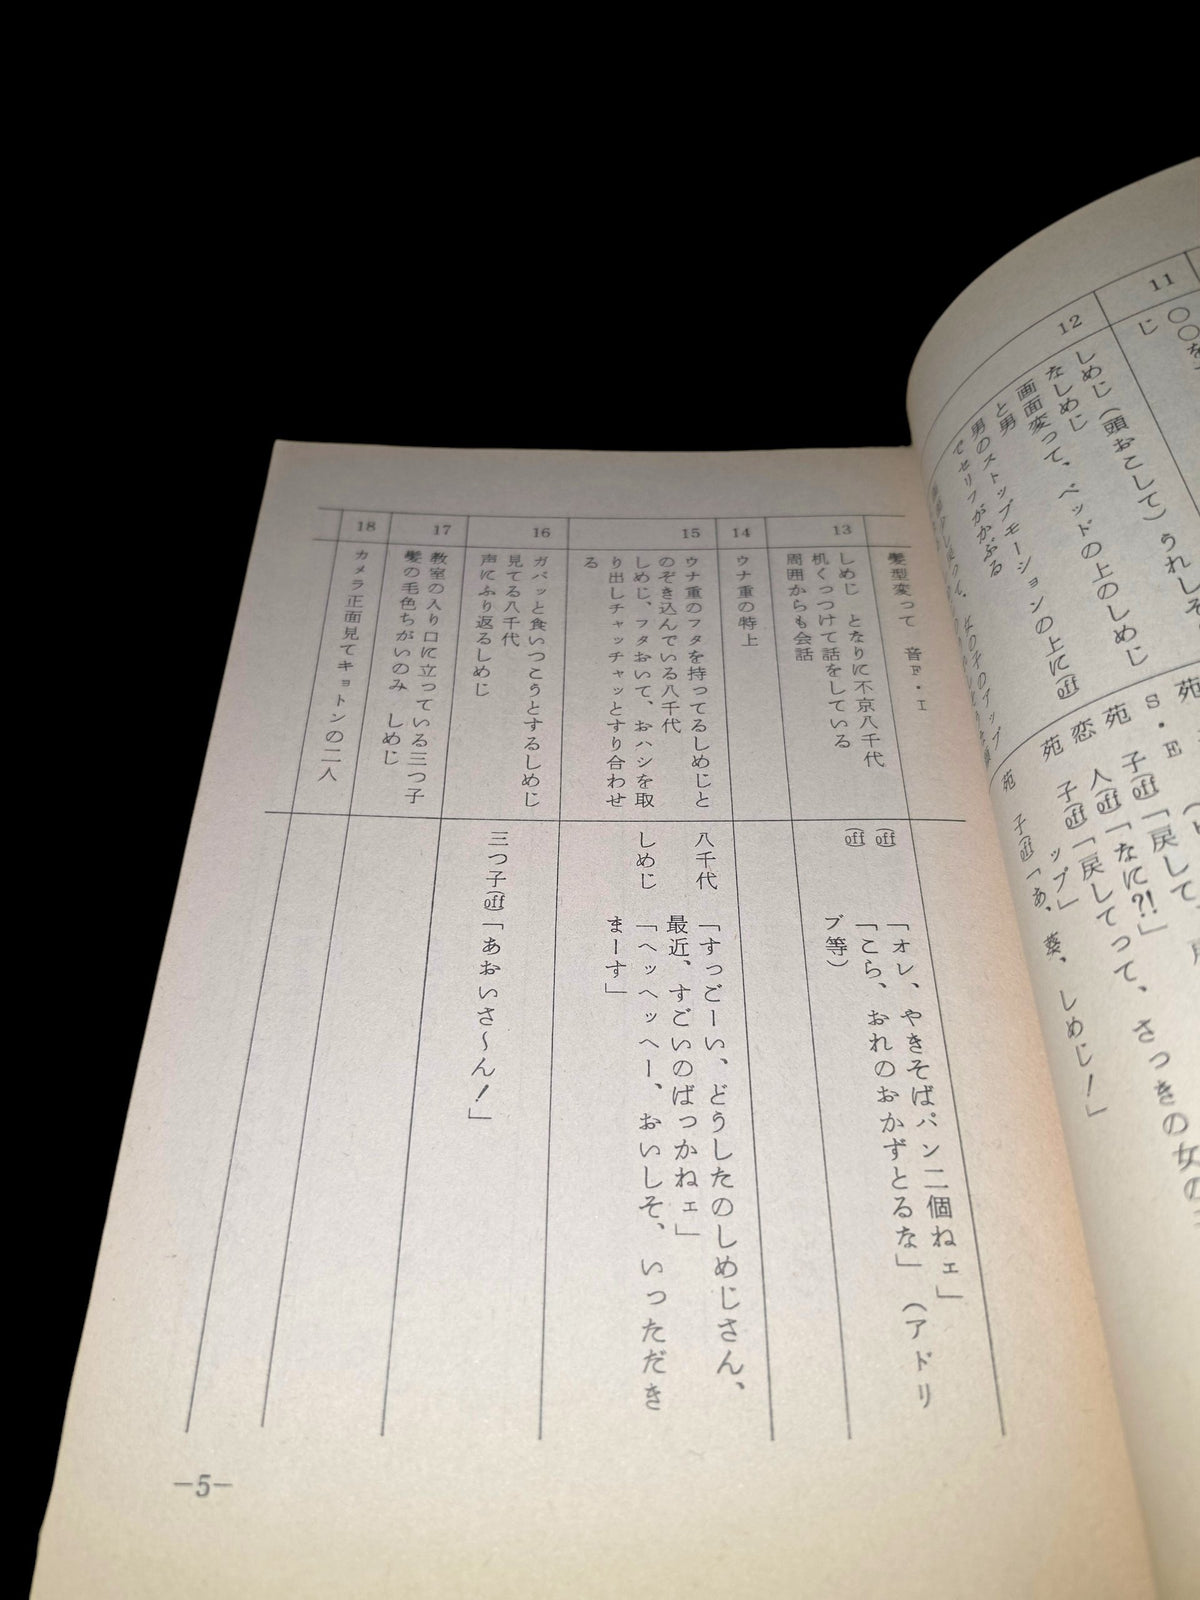 11
〇〇を
じ
12
しめじ（頭おこして）うれしそ
なしめじ
画面変って、ベッドの上のしめじ
と男
男のストップモーションの上に㋔off
でセリフがかぶる
苑
S・E
苑　子off「戻して、
恋　人off「なに?!」
苑　子off「戻してって、さっきの女の
ップ」
苑　子off「あ、葵、しめじ！」
髪型変って　音F・I
13
しめじ　となりに不京八千代
机くっつけて話をしている
周囲からも会話
off「オレ、やきそばパン二個ねェ」
off「こら、おれのおかずとるな」（アドリ
ブ等）
14
ウナ重の特上
15
ウナ重のフタを持ってるしめじと
のぞき込んでいる八千代
しめじ、フタおいて、おハシを取
り出しチャッチャッとすり合わせ
る
八千代「すっごーい、どうしたのしめじさん、
最近、すごいのばっかねェ」
しめじ「ヘッヘッヘー、おいしそ、いっただき
まーす」
16
ガバッと食いつこうとするしめじ
見てる八千代
声にふり返るしめじ
三つ子off「あおいさ〜ん！」
17
教室の入り口に立っている三つ子
髪の毛色ちがいのみ　しめじ
18
カメラ正面見てキョトンの二人
—5—